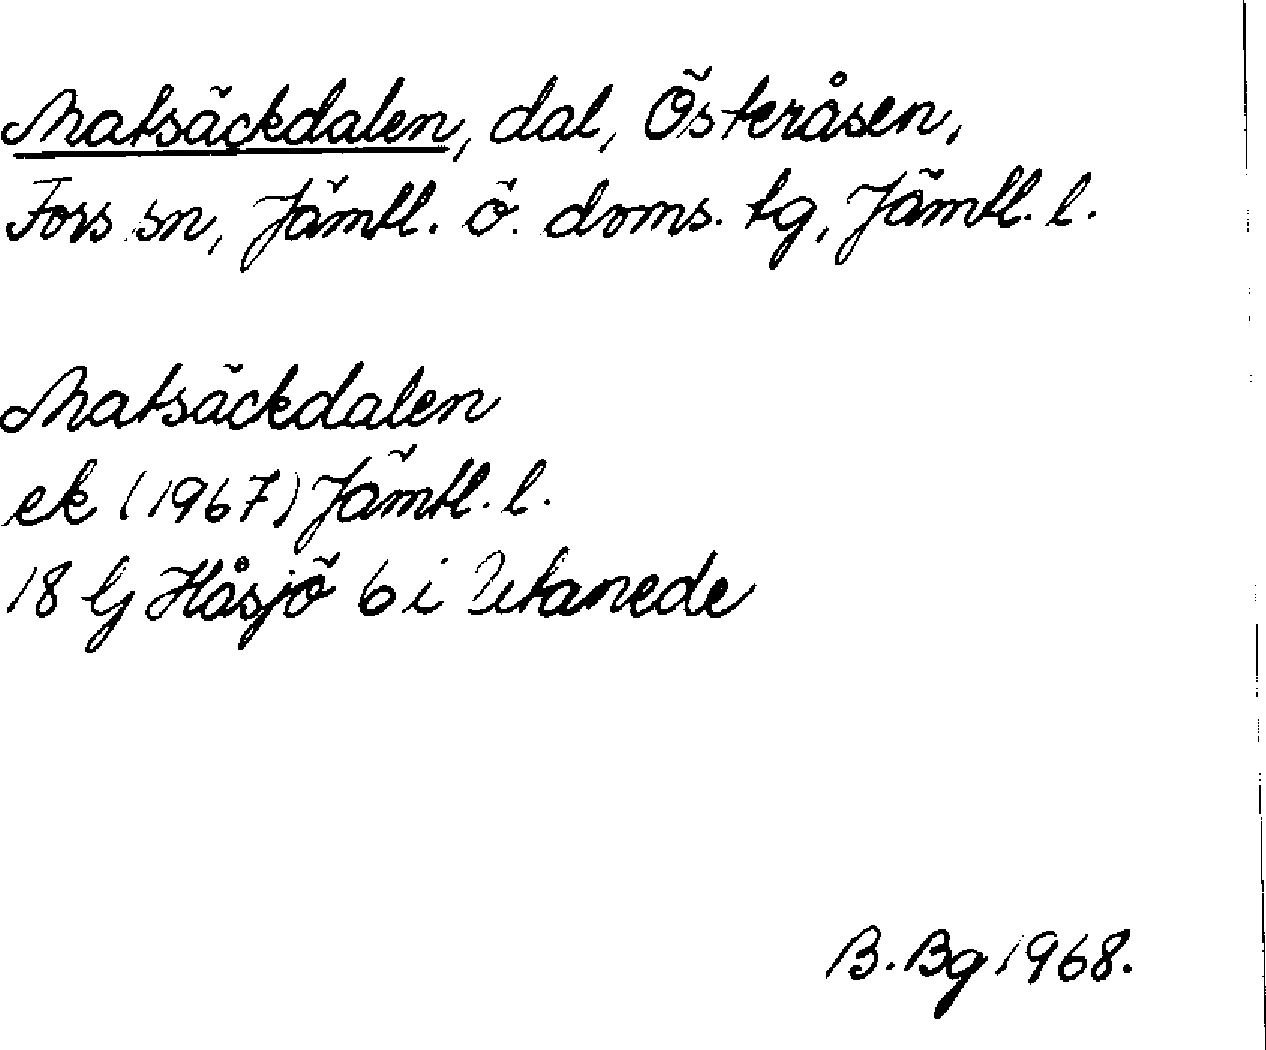 Matsäckdalen, dal, Österåsen,
Fors sn, Jämtl. ö. doms. tg, Jämtl. l.
Matsäckdalen
ek (1967) Jämtl. l.
18 G Håsjö 6 i Utanede
B. Bg 1968.